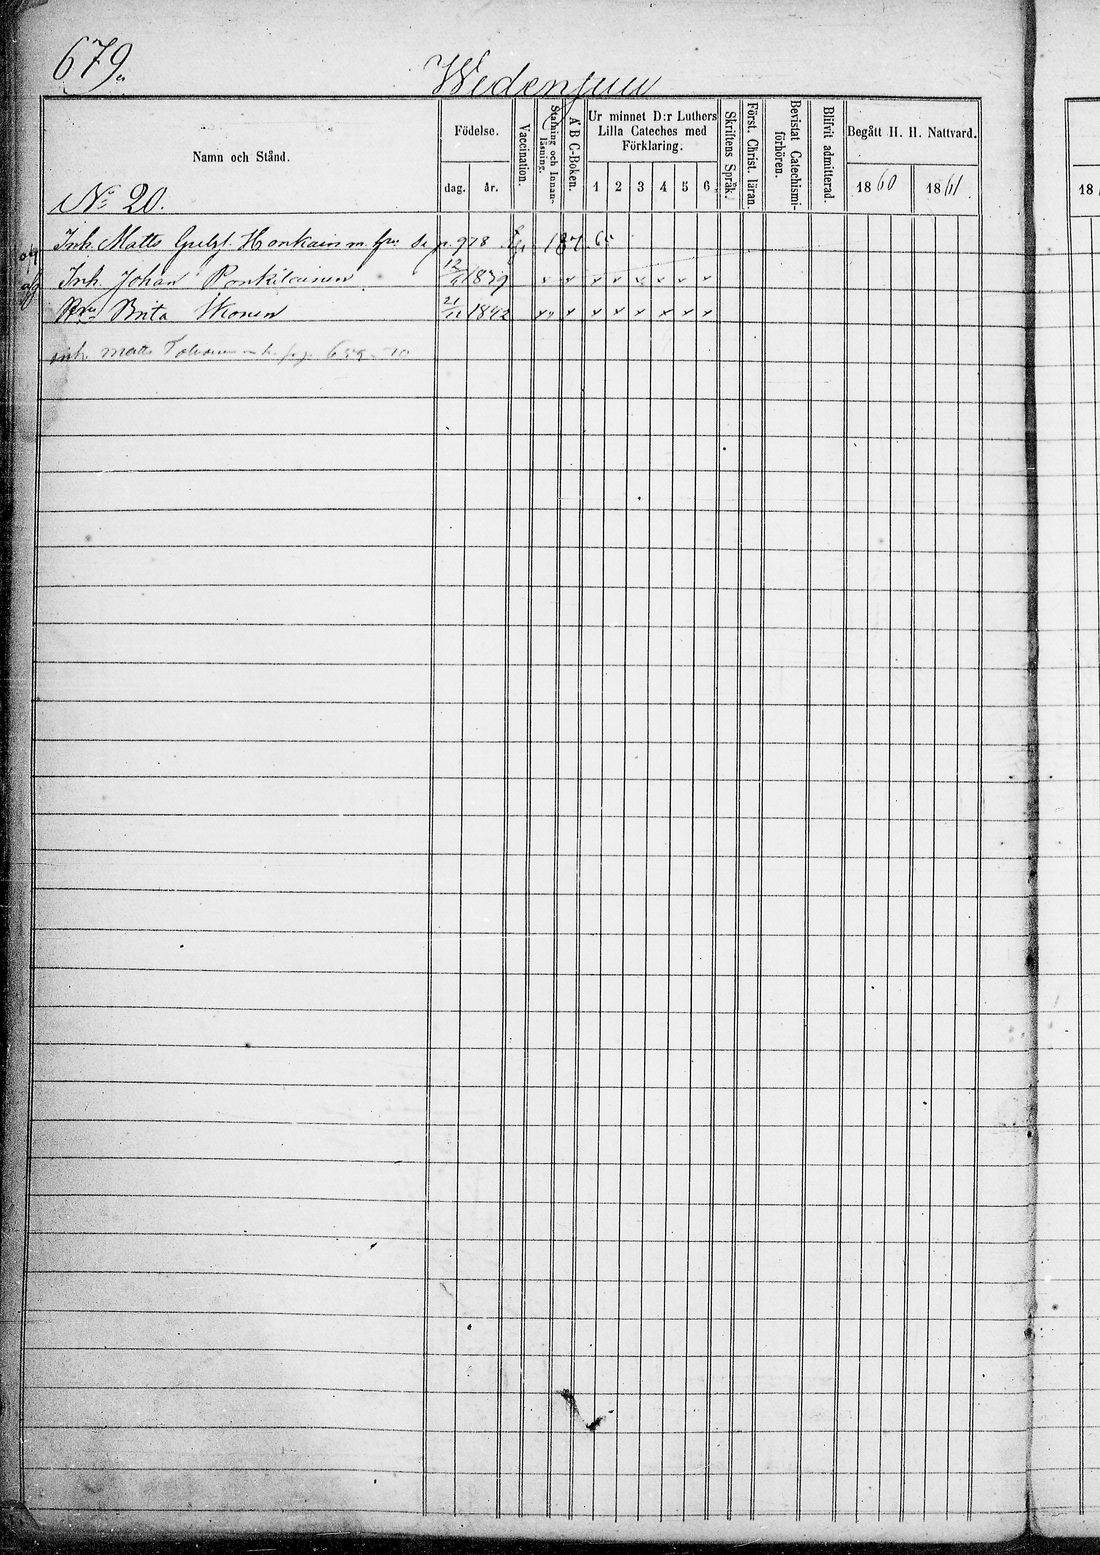 679a
Wedensuu
Namn och Stånd.
Födelse.
dag. år.
Vaccination.
Stafning och Innan-läsning.
A B C-Boken.
Ur minnet D:r Luthers
Lilla Cateches med
Förklaring.
1 2 3 4 5 6
Skriftens Språk.
Först. Christ. läran.
Bevistat Catechismi-förhören.
Blifvit admitterad.
Begått H. H. Nattvard.
1860 1861
18
No 20.
Inh. Matts Honkain m. hu se p. 978
Inh. Johan Ponkilainen 1839 x x x x x x x x
Hu Brita Ikonen 21/11 1842 x x x x x x x x
inh Matts